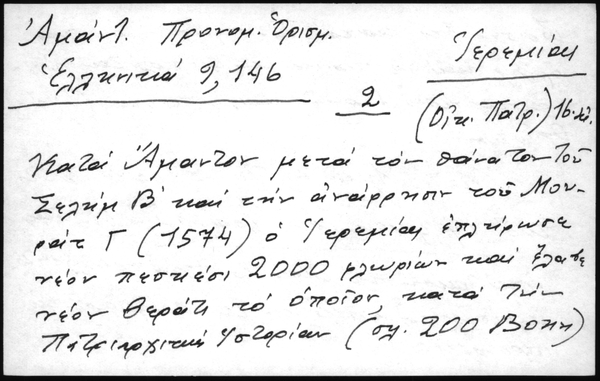 Ἀμάντ. Προνομ. Ὁρισμ.
Ἑλληνικά 9, 146
Ἱερεμίας
2
(Οἰκ. Πατρ.) 16. αἰ.
Κατά Ἄμαντον μετά τόν θάνατον τοῦ
Σελήμ Β' καί τήν ἀνάρρησιν τοῦ Μου-
ράτ Γ (1574) ὁ Ἱερεμίας ἐπλήρωσε
νέον πεσκέσι 2000 φλωρίων καί ἔλαβε
νέον βεράτι τό ὁποῖον, κατά τήν
Πατριαρχικήν Ἱστορίαν (σελ. 200 Βοnn)